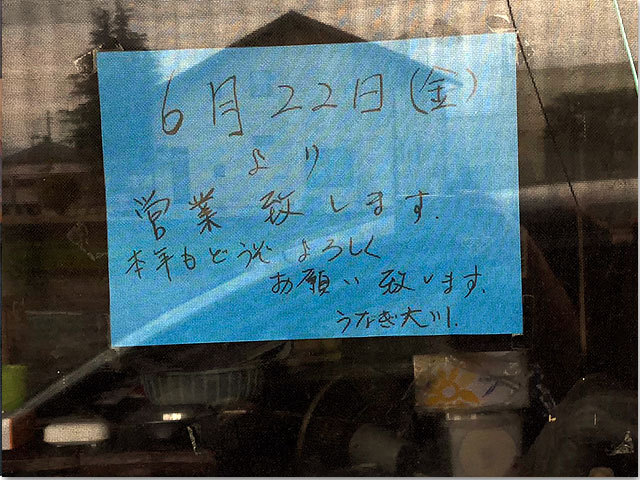 6月22日(金)
より
営業致します.
本年もどうぞよろしく
お願い致します.
うなぎ大川.